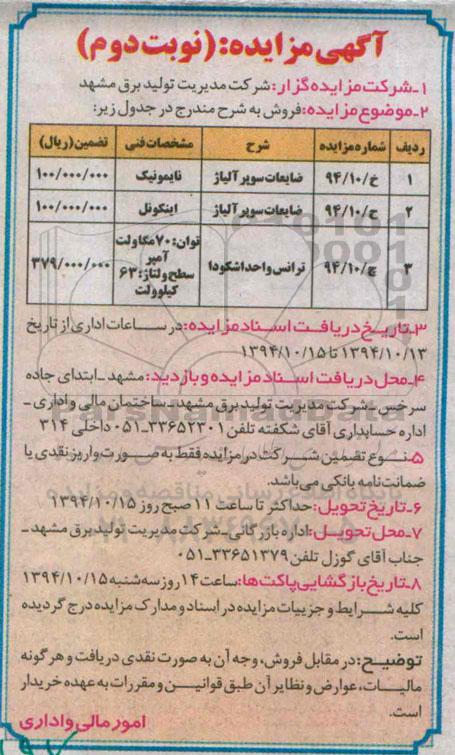 آگهی مزایده: (نوبت دوم)
۱ـ شرکت مزایده گزار: شرکت مدیریت تولید برق مشهد
۲ـ موضوع مزایده: فروش به شرح مندرج در جدول زیر:
ردیف شماره مزایده شرح مشخصات فنی تضمین (ریال)
۱ خ/۹۴/۱۰ ضایعات سوپر آلیاژ نایمونیک ۱۰۰/۰۰۰/۰۰۰
۲ ح/۹۴/۱۰ ضایعات سوپر آلیاژ اینکونل ۱۰۰/۰۰۰/۰۰۰
۳ چ/۹۴/۱۰ ترانس واحد اشکودا توان: ۷۰ مگاولت
آمپر
سطح ولتاژ: ۶۳
کیلوولت ۳۷۹/۰۰۰/۰۰۰
۳ـ تاریخ دریافت اسناد مزایده: در ساعات اداری از تاریخ
۱۳۹۴/۱۰/۱۳ تا ۱۳۹۴/۱۰/۱۵
۴ـ محل دریافت اسناد مزایده و بازدید: مشهد ـ ابتدای جاده
سرخس ـ شرکت مدیریت تولید برق مشهد ـ ساختمان مالی و اداری ـ
اداره حسابداری آقای شکفته تلفن ۳۳۶۵۲۳۰۱ـ۰۵۱ داخلی ۳۱۴
۵ـ نوع تضمین شرکت در مزایده فقط به صورت واریز نقدی یا
ضمانت‌نامه بانکی می‌باشد.
۶ـ تاریخ تحویل: حداکثر تا ساعت ۱۱ صبح روز ۱۳۹۴/۱۰/۱۵
۷ـ محل تحویل: اداره بازرگانی ـ شرکت مدیریت تولید برق مشهد ـ
جناب آقای گوزل تلفن ۳۳۶۵۱۳۷۹ـ۰۵۱
۸ـ تاریخ بازگشایی پاکت‌ها: ساعت ۱۴ روز سه‌شنبه ۱۳۹۴/۱۰/۱۵
کلیه شرایط و جزییات مزایده در اسناد و مدارک مزایده درج گردیده
است.
توضیح: در مقابل فروش، وجه آن به صورت نقدی دریافت و هرگونه
مالیات، عوارض و نظایر آن طبق قوانین و مقررات به عهده خریدار
است.
امور مالی و اداری